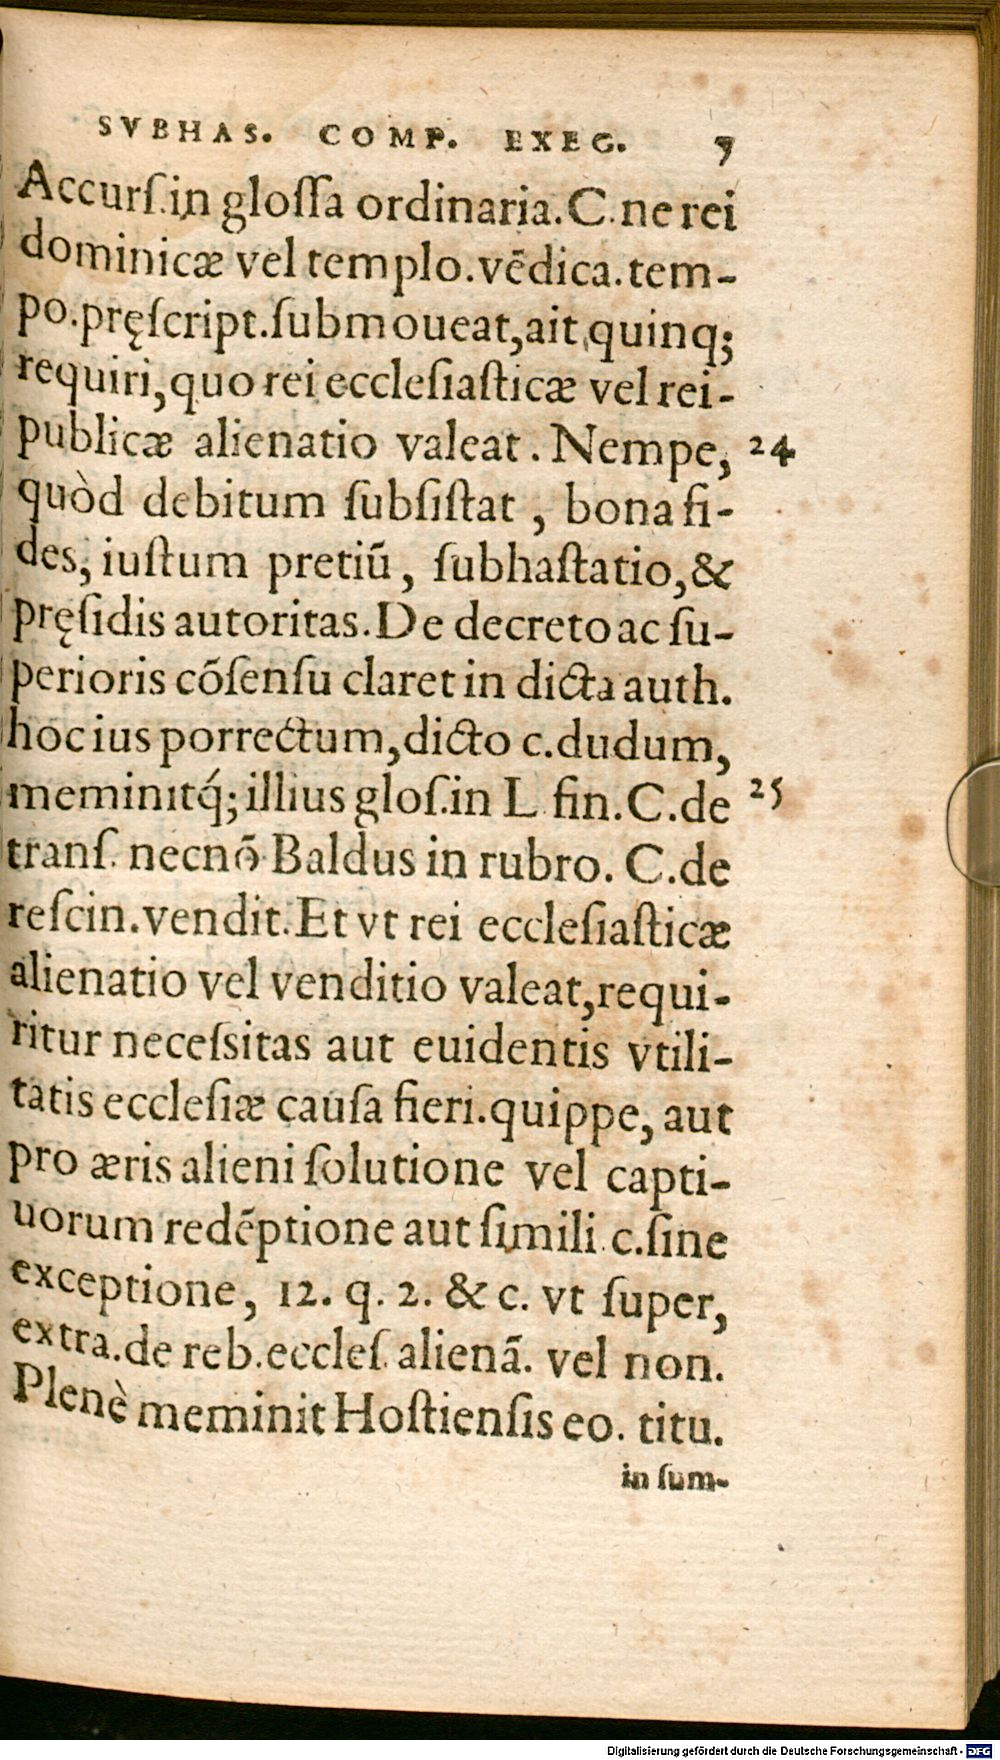 SVBHAS. COMP. EXEG. 7
Accurſ.in gloſſa ordinaria. C. ne rei
dominicæ vel templo.vēdica.tem-
po.pręſcript.ſubmoueat,ait quinq;
requiri,quo rei eccleſiaſticæ vel rei-
publicæ alienatio valeat. Nempe, 24
quòd debitum ſubſiſtat, bona fi-
des, iuſtum pretiū, ſubhaſtatio,&
pręſidis autoritas. De decreto ac ſu-
perioris cōſenſu claret in dicta auth.
hoc ius porrectum,dicto c.dudum,
meminitq́; illius gloſ.in L fin. C.de 25
tranſ. necnō Baldus in rubro. C.de
reſcin.vendit. Et vt rei eccleſiaſticæ
alienatio vel venditio valeat,requi-
ritur neceſsitas aut euidentis vtili-
tatis eccleſiæ cauſa fieri.quippe, aut
pro æris alieni ſolutione vel capti-
uorum redēptione aut ſimili. c.ſine
exceptione, 12. q. 2. & c. vt ſuper,
extra.de reb.eccleſ. alienā. vel non.
Plenè meminit Hoſtienſis eo. titu.
in ſum-
Digitalisierung gefördert durch die Deutsche Forschungsgemeinschaft - DFG